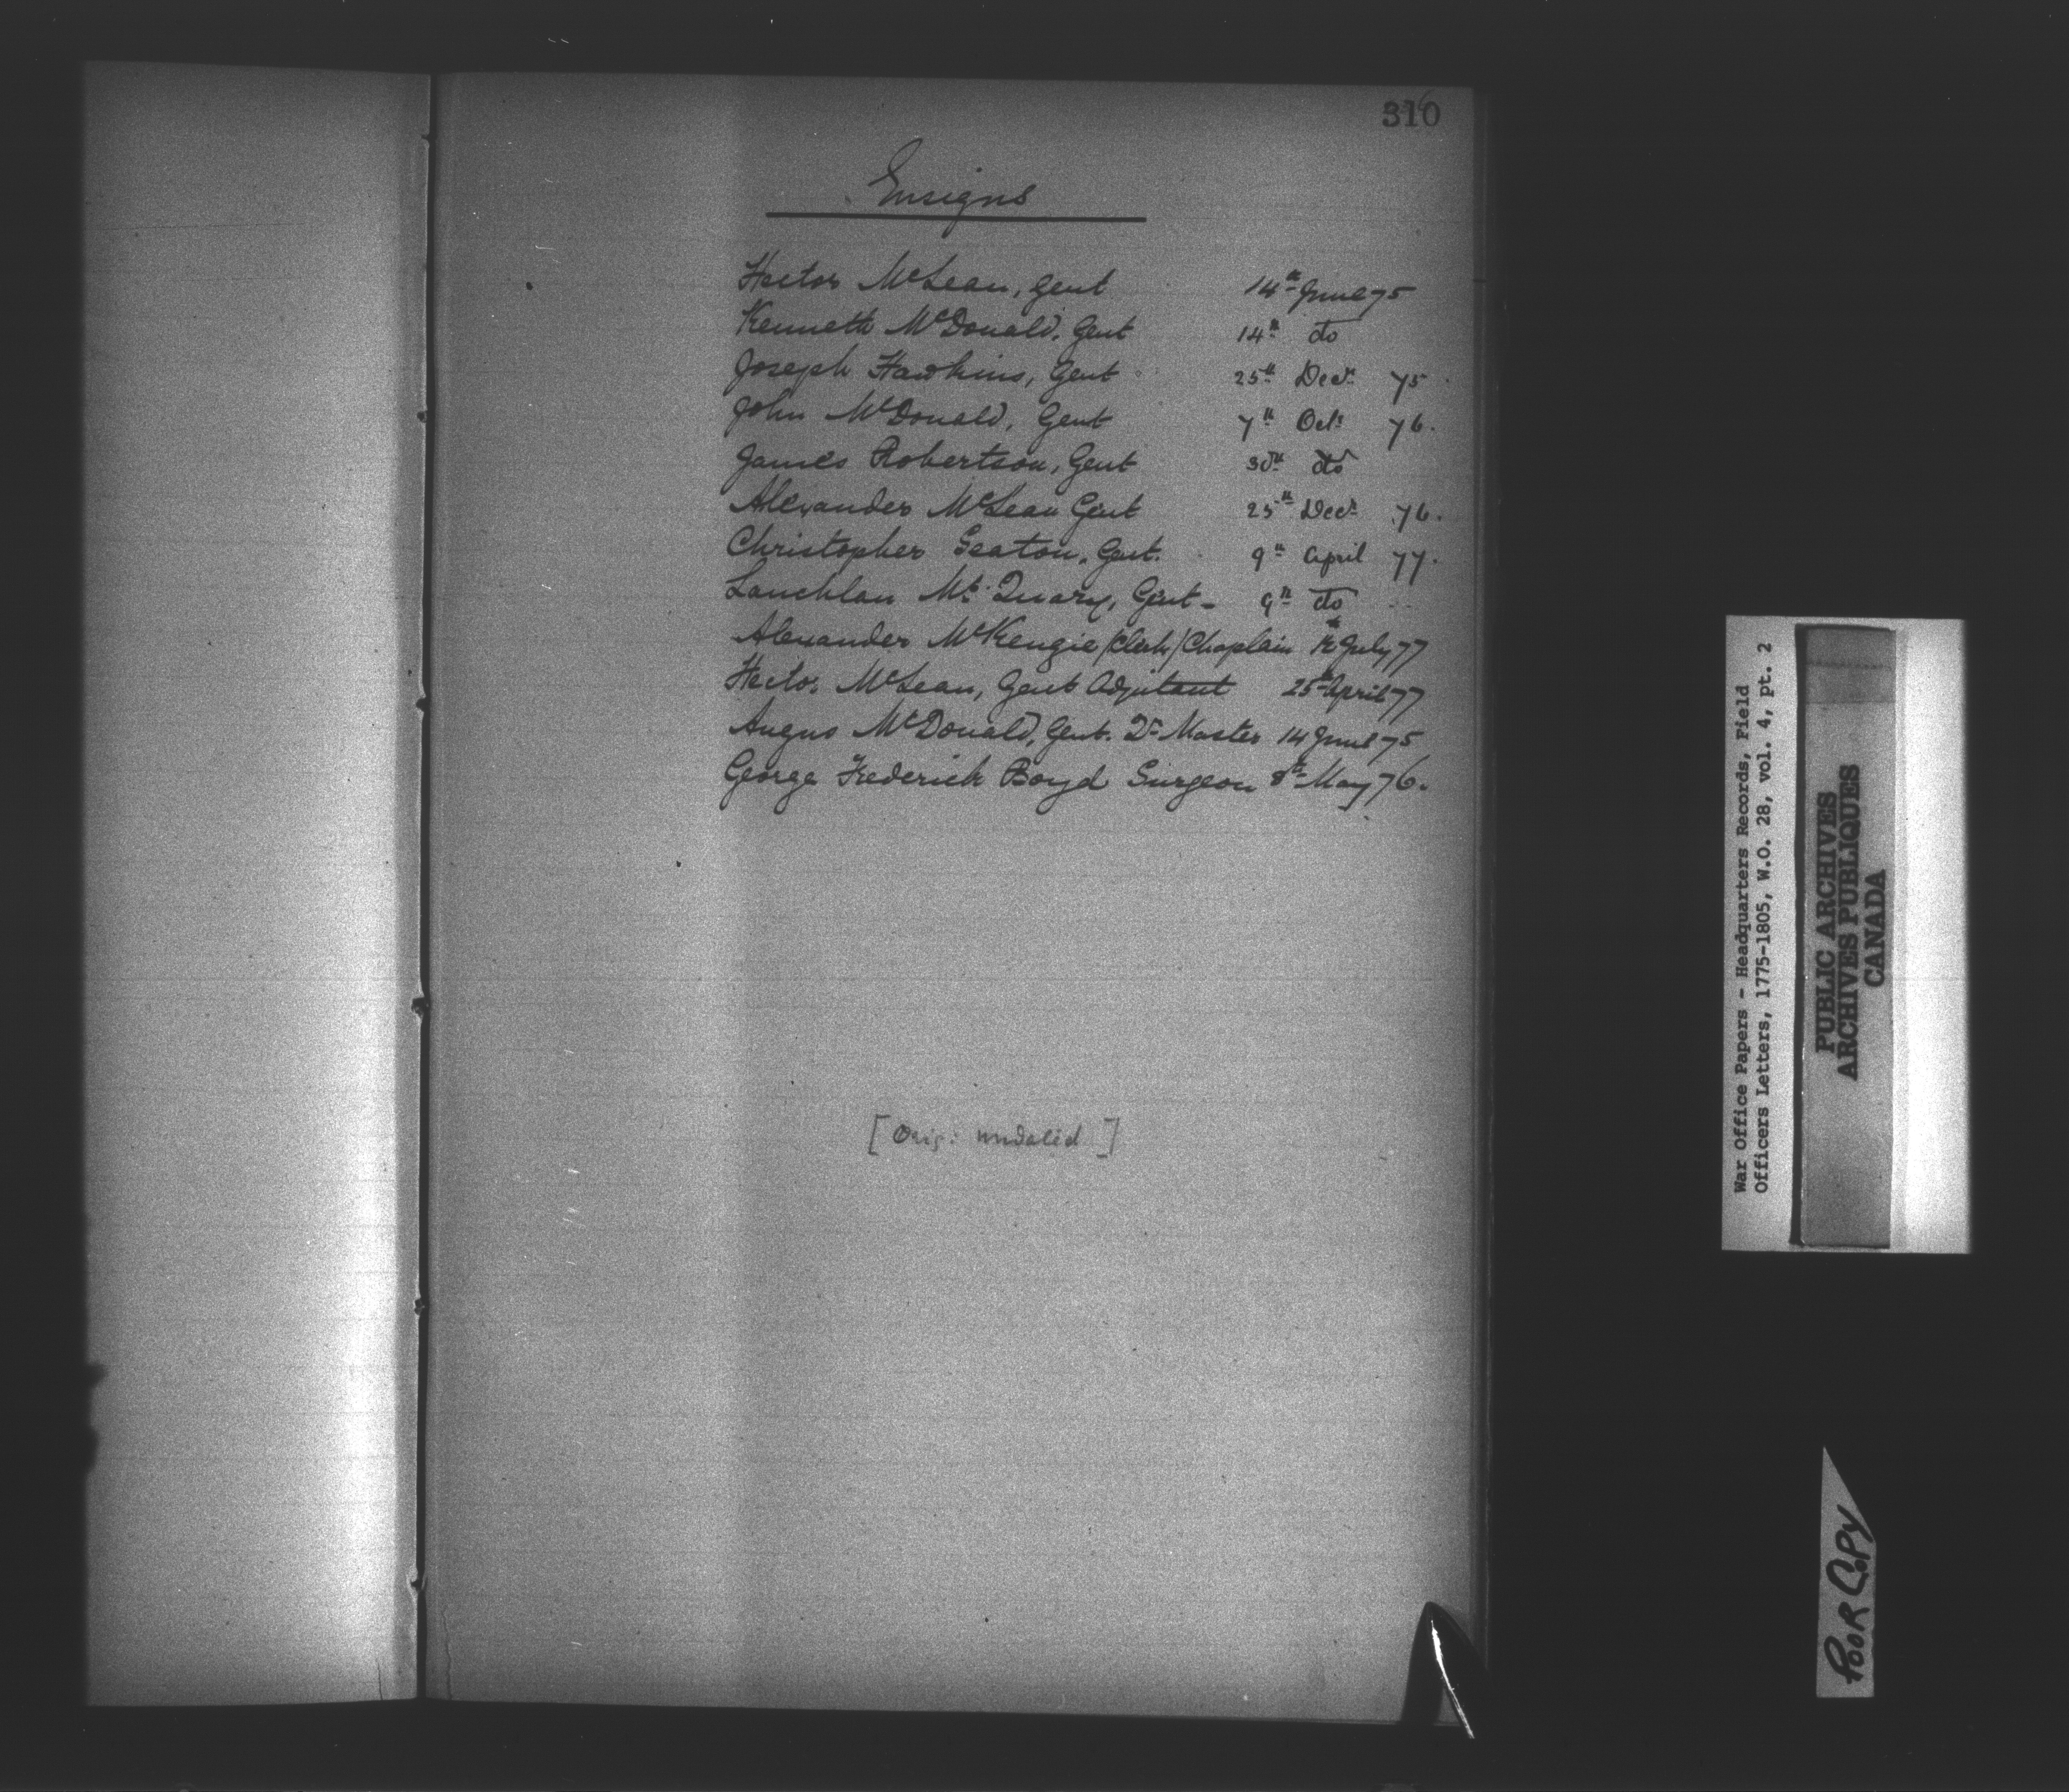 310
Ensigns
Hector McLean, Gent 14th June 75
Kenneth McDonald, Gent 14th do
Joseph Hawkins, Gent 25th Decr 75
John McDonald, Gent 7th Octr 76.
James Robertson, Gent 30th do
Alexander McLean Gent 25th Decr 76.
Christopher Seaton, Gent. 9th April 77.
Lauchlan Mc Quary, Gent - 9th do
Alexander McKenzie (Clerk) Chaplain July 77
Hector McLean, Gent Adjutant 25th April 77
Angus McDonald, Gent. Qr Master 14 June 75
George Frederick Boyd Surgeon 8th May 76.
[Orig: undated]
War Office Papers - Headquarters Records, Field
Officers Letters, 1775-1805, W.O. 28, vol. 4, pt. 2
PUBLIC ARCHIVES
ARCHIVES PUBLIQUES
CANADA
POOR COPY